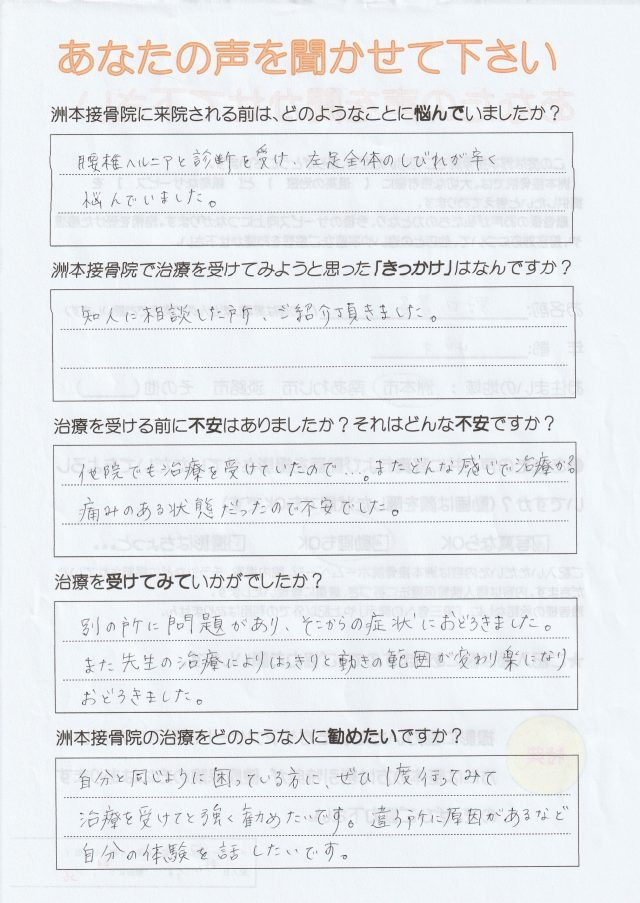 あなたの声を聞かせて下さい
洲本接骨院に来院される前は、どのようなことに悩んでいましたか？
腰椎ヘルニアと診断を受け、左足全体のしびれが辛く
悩んでいました。
洲本接骨院で治療を受けてみようと思った「きっかけ」はなんですか？
知人に相談した所、ご紹介頂きました。
治療を受ける前に不安はありましたか？それはどんな不安ですか？
他院でも治療を受けていたので…。またどんな感じで治療か？
痛みのある状態だったので不安でした。
治療を受けてみていかがでしたか？
別の所に問題があり、そこからの症状におどろきました。
また先生の治療によりはっきりと動きの範囲が変わり楽になり
おどろきました。
洲本接骨院の治療をどのような人に勧めたいですか？
自分と同じように困っている方に、ぜひ1度行ってみて
治療を受けてと強く勧めたいです。違う所に原因があるなど
自分の体験を話したいです。